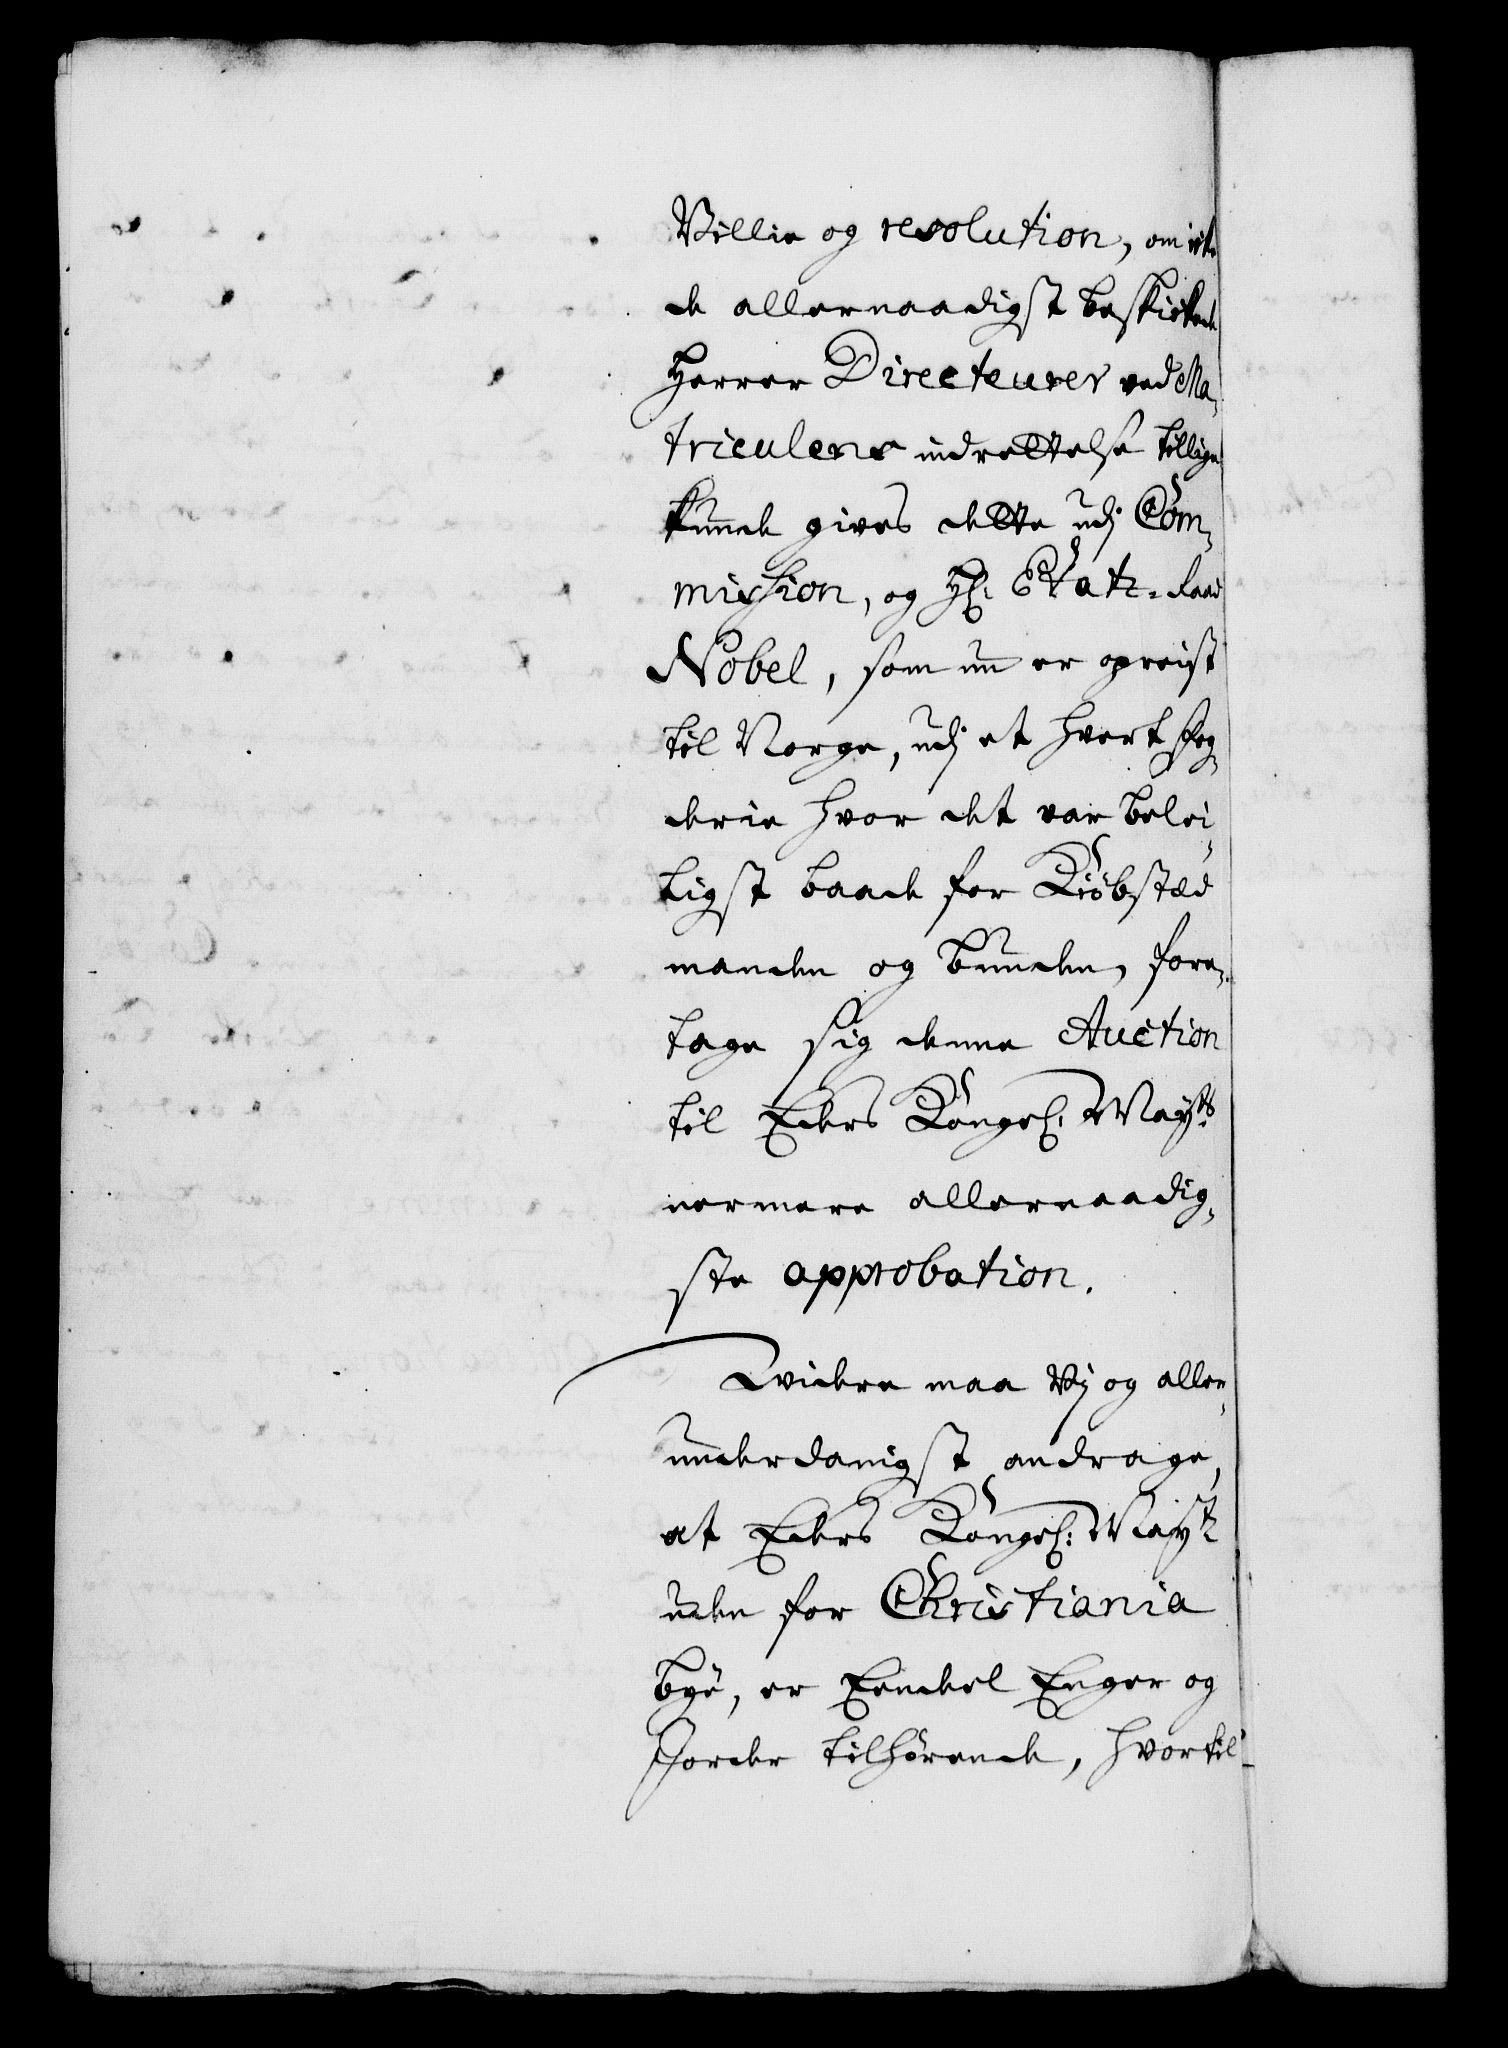 Villie og resolution, om icke
de allernaadigst beskickede
Herrer Directeurer ved Ma-
triculens indrettelse tillige
kunde gives dette udj Com-
mission, og Hr: Etatz-Raad
Nobel, som nu er opreist
til Norge, udj et hvert Fog-
derie hvor det var belei-
ligst baade for Kiöbstæd
manden og bunden, fore-
tage sig denne Auction
til Eders Kongel: Mayts
nermere allernaadig-
ste approbation.
Widere maa Vj og aller-
underdanigst andrage,
at Eders Kongel: Mayt
uden for Christiania
bye, er Eendeel Enger og
Jorder tilhörende, hvortil